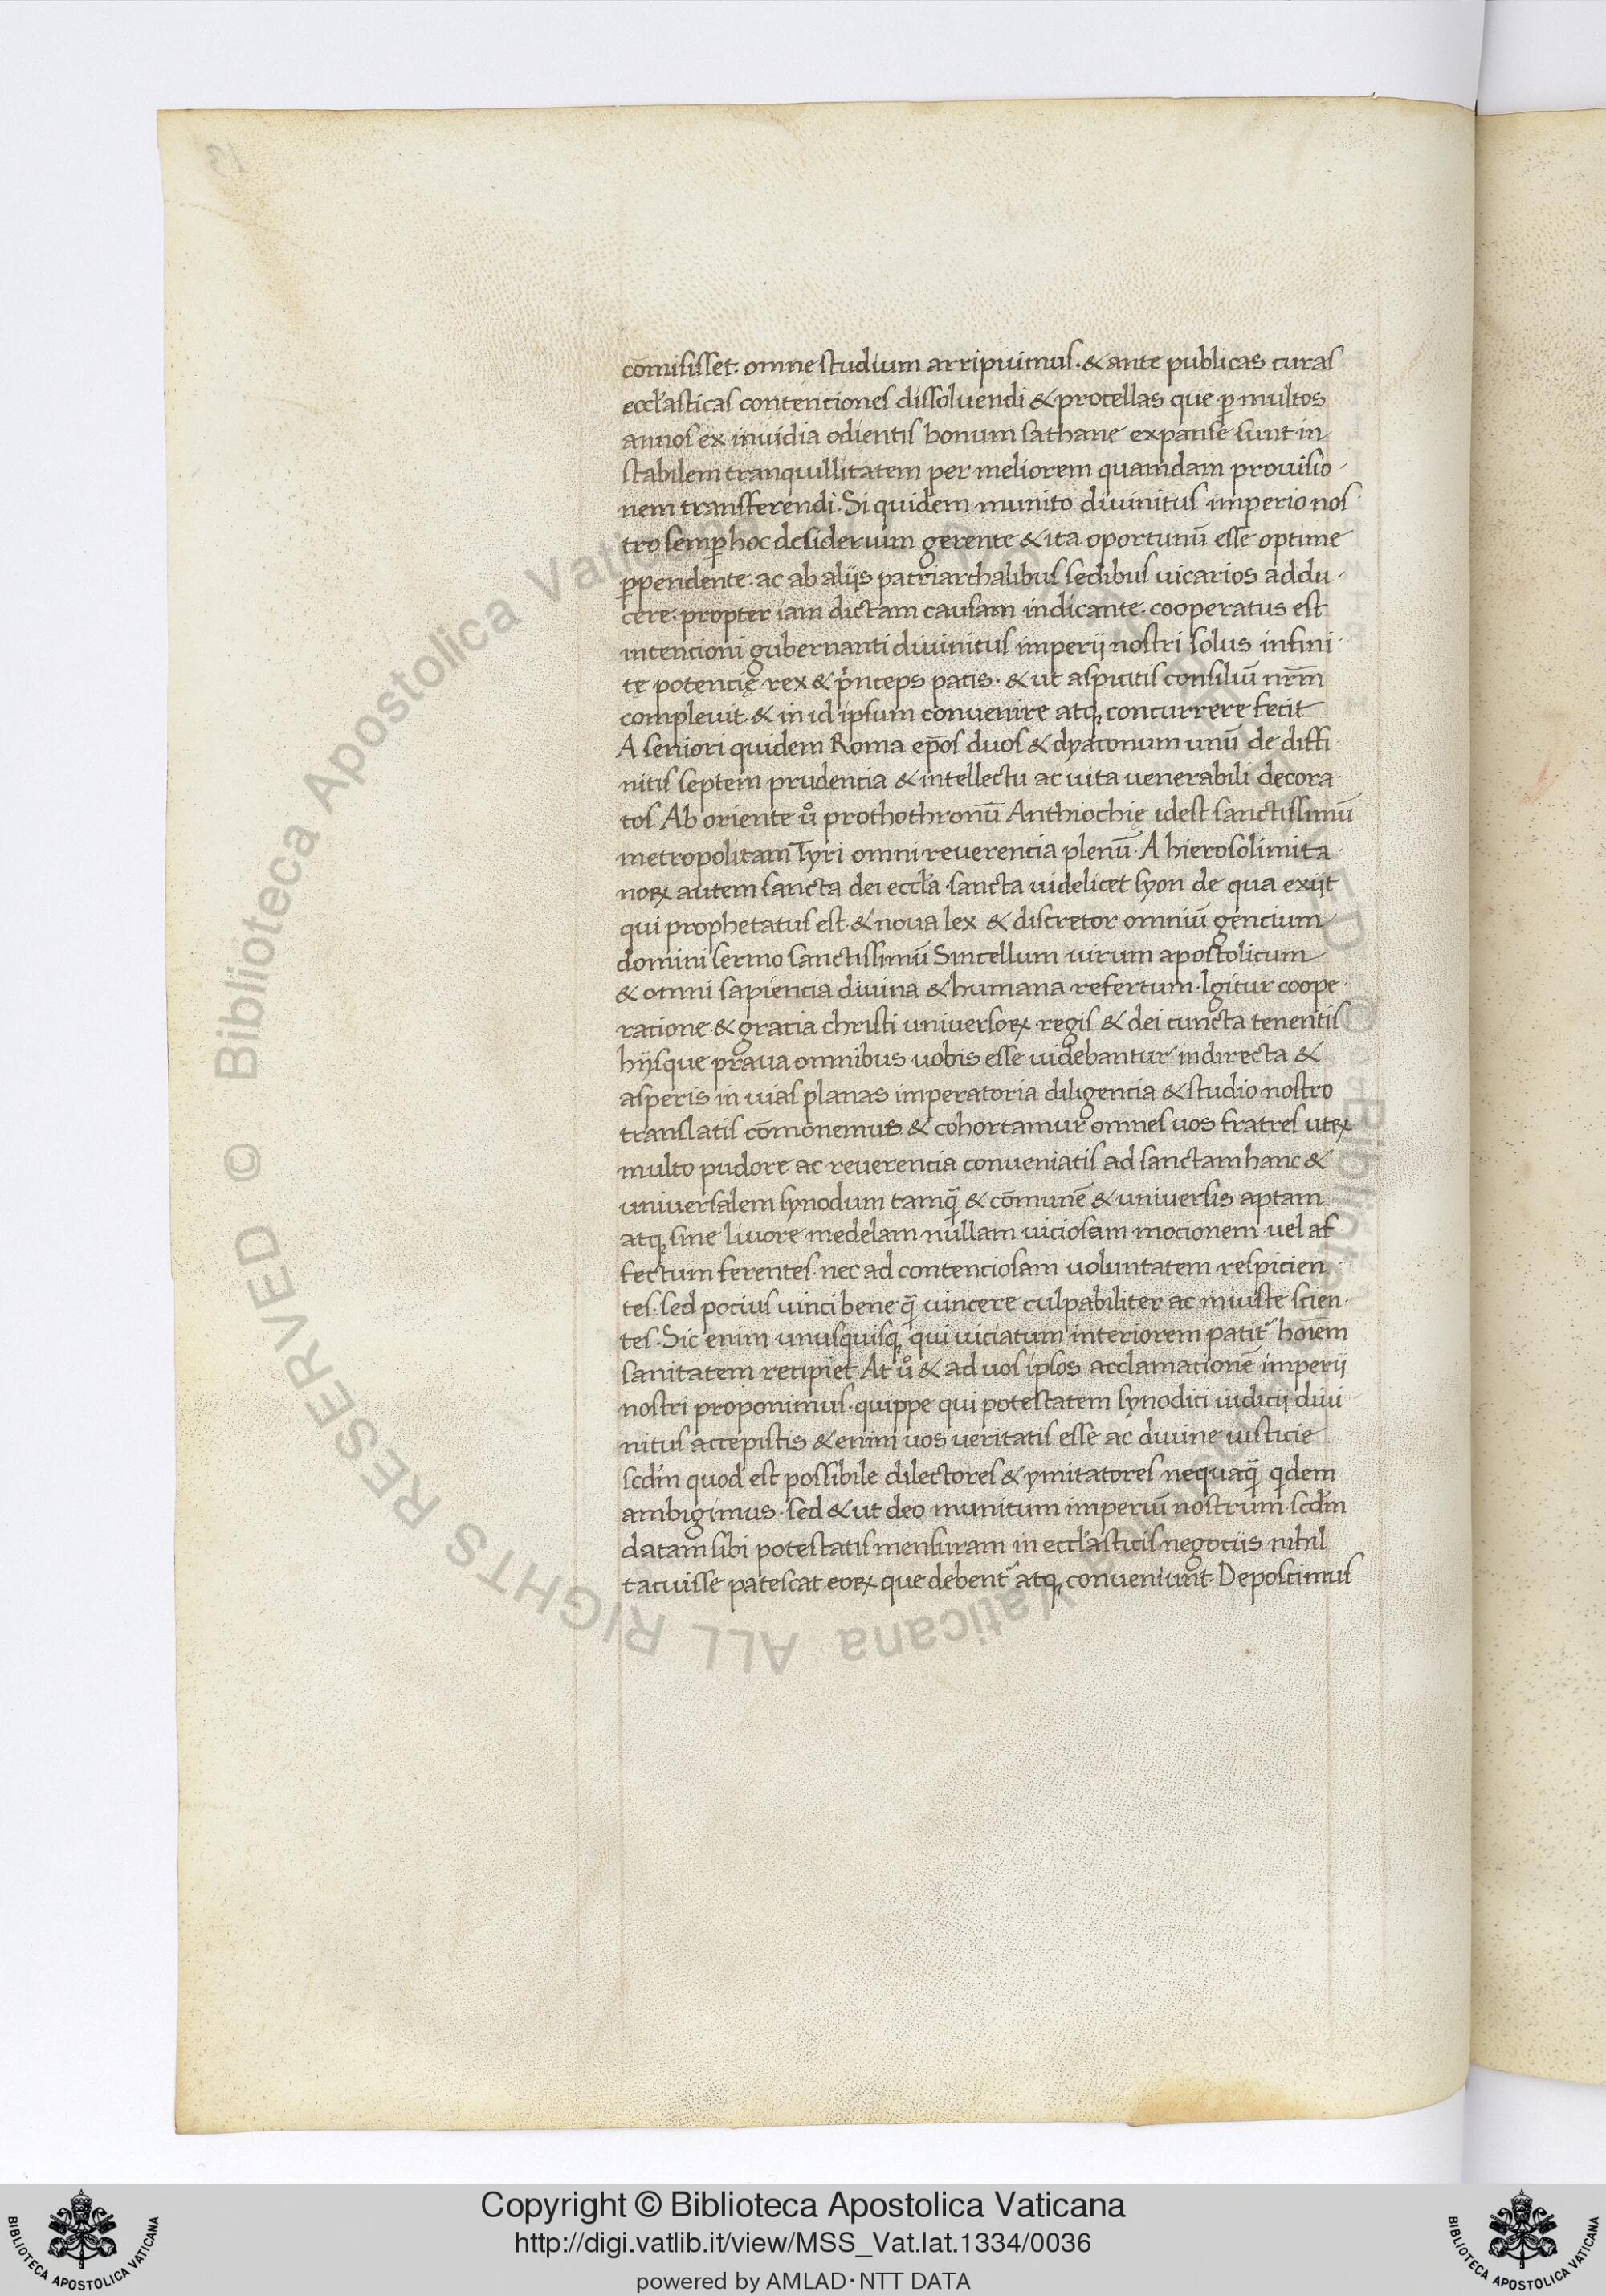 com̄isisset: omne studium arripuimus. & ante publicas curas
eccl̄asticas contenciones dissoluendi & procellas que ꝑ multos
annos ex inuidia odientis bonum sathane expanse sunt in
stabilem tranquillitatem per meliorem quamdam prouisio
nem transferendi. Si quidem munito diuinitus imperio nos
tro semꝑ hoc desiderium gerente & ita oportunū esse optime
ꝑpendente. ac ab aliis patriarchalibus sedibus uicarios addu
cere: propter iam dictam causam indicante. cooperatus est
intencioni gubernanti diuinitus imperii nostri solus infini
tę potencię rex & p̓nceps pacis. & ut aspicitis consiliū nr̄m
compleuit. & in id ipsum conuenire atq, concurrere fecit
A seniori quidem Roma ep̄os duos & dyaconum unū de diffi
nitis septem prudencia & intellectu ac uita uenerabili decora
tos Ab oriente u̓o prothothronū Anthiochię idest sanctissimū
metropolitam Tyri omni reuerencia plenū. A hierosolimita
noꝝ autem sancta dei eccl̄a. sancta uidelicet syon de qua exiit
qui prophetatus est. & noua lex & discretor omniū gencium
domini sermo sanctissimū Sincellum uirum apostolicum
& omni sapiencia diuina & humana refertum. Igitur coope
racione & gracia christi uniuersoꝝ regis & dei cuncta tenentis
hiisque praua omnibus uobis esse uidebantur in directa &
asperis in uias planas imperatoria diligencia & studio nostro
translatis cōmonemus & cohortamur omnes uos fratres ut eꝝ
multo pudore ac reuerencia conueniatis ad sanctam hanc &
uniuersalem synodum tamq̄ & cōmunē & uniuersis aptam
atq, sine liuore medelam nullam uiciosam mocionem uel af
fectum ferentes. nec ad contenciosam uoluntatem respicien
tes. sed pocius uinci bene q̄ uincere culpabiliter ac iniuste scien
tes. Sic enim unusquisq, qui uiciatum interiorem patit᷑ hoīem
sanitatem recipiet. At u̓o & ad uos ipsos acclamacionē imperii
nostri proponimus. quippe qui potestatem synodici iudicii diui
nitus accepistis & enim uos ueritatis esse ac diuine iusticie
scd̄m quod est possibile dilectores & ymitatores nequaq̄ q̓dem
ambigimus. sed & ut deo munitum imperiū nostrum. scd̄m
datam sibi potestatis mensuram in eccl̄asticis negociis nihil
tacuisse patescat eoꝝ que debent᷑ atq, conueniunt. Deposcimus
Copyright © Biblioteca Apostolica Vaticana
http://digi.vatlib.it/view/MSS_Vat.lat.1334/0036
powered by AMLAD·NTT DATA
BIBLIOTECA APOSTOLICA VATICANA
BIBLIOTECA APOSTOLICA VATICANA
© Biblioteca Apostolica Vaticana
ALL RIGHTS RESERVED